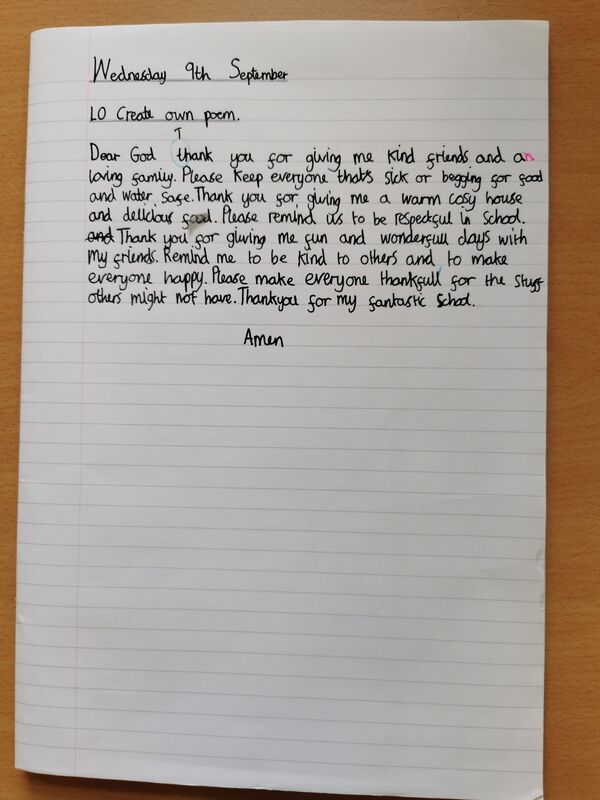 Wednesday 9th September
LO Create own poem.
T
Dear God thank you for giving me kind friends and an
loving family. Please keep everyone that's sick or begging for food
and water, safe. Thank you for giving me a warm cosy house
and delicious food. Please remind us to be respectful in School.
and Thank you for giving me fun and wonderfull days with
My friends. Remind me to be kind to others and to make
everyone happy. Please make everyone thankfull for the stuff
others might not have. Thankyou for my fantastic School.
Amen